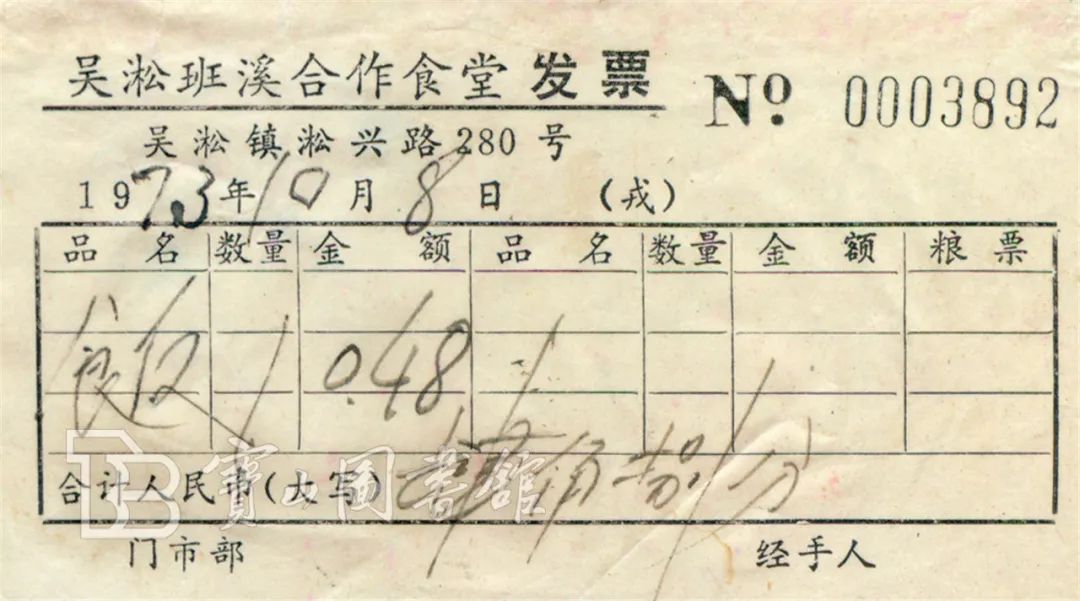 吴淞班溪合作食堂 发票 № 0003892
吴淞镇淞兴路280号
1973年10月8日 (戎)
品名 数量 金额 品名 数量 金额 粮票
0.48
合计人民币(大写) 角 分
寶山圖書館
门市部 经手人